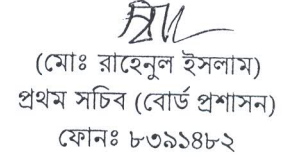 (মোঃ রাহেনুল ইসলাম)
প্রথম সচিব (বোর্ড প্রশাসন)
ফোনঃ ৮৩৯১৪৮২